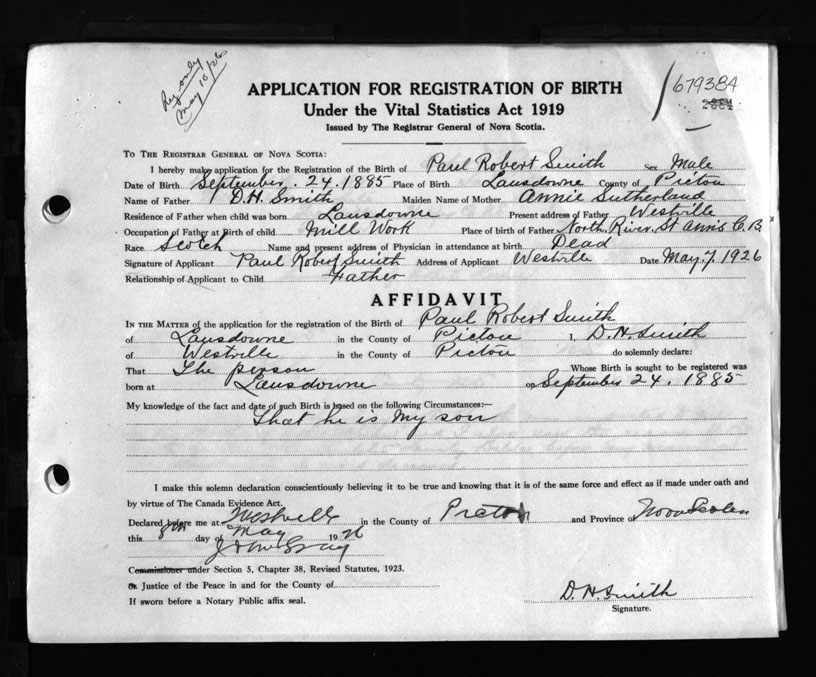 Reg only
May 10/26
679384
APPLICATION FOR REGISTRATION OF BIRTH
Under the Vital Statistics Act 1919
Issued by The Registrar General of Nova Scotia.
TO THE REGISTRAR GENERAL OF NOVA SCOTIA:
I hereby make application for the Registration of the Birth of Paul Robert Smith Sex Male
Date of Birth September. 24. 1885 Place of Birth Lansdowne County of Pictou
Name of Father D. H. Smith Maiden Name of Mother Annie Sutherland
Residence of Father when child was born Lansdowne Present address of Father Westville
Occupation of Father at Birth of child Mill Work Place of birth of Father North River. St Anns C. B.
Race Scotch Name and present address of Physician in attendance at birth Dead
Signature of Applicant Paul Robert Smith Address of Applicant Westville Date May. 7, 1926
Relationship of Applicant to Child Father
AFFIDAVIT
IN THE MATTER of the application for the registration of the Birth of Paul Robert Smith
of Lansdowne in the County of Pictou I, D. H. Smith
of Westville in the County of Pictou do solemnly declare:
That The person Whose Birth is sought to be registered was
born at Lansdowne on September 24. 1885
My knowledge of the fact and date of such Birth is based on the following Circumstances:—
That he is my son
I make this solemn declaration conscientiously believing it to be true and knowing that it is of the same force and effect as if made under oath and
by virtue of The Canada Evidence Act.
Declared before me at Westville in the County of Pictou and Province of Nova Scotia
this 8th day of May 1926
Commissioner under Section 5, Chapter 38, Revised Statutes, 1923.
or Justice of the Peace in and for the County of
If sworn before a Notary Public affix seal.
D. H. Smith
Signature.